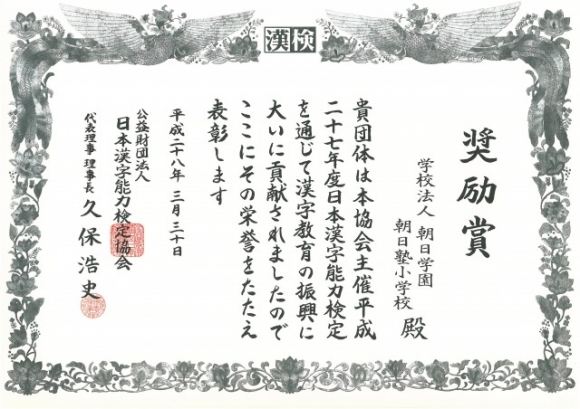 漢検
奨励賞
学校法人 朝日学園
朝日塾小学校 殿
貴団体は本協会主催平成
二十七年度日本漢字能力検定
を通じて漢字教育の振興に
大いに貢献されましたので
ここにその栄誉をたたえ
表彰します
平成二十八年 三月 三十日
公益財団法人
日本漢字能力検定協会
代表理事 理事長 久保浩史